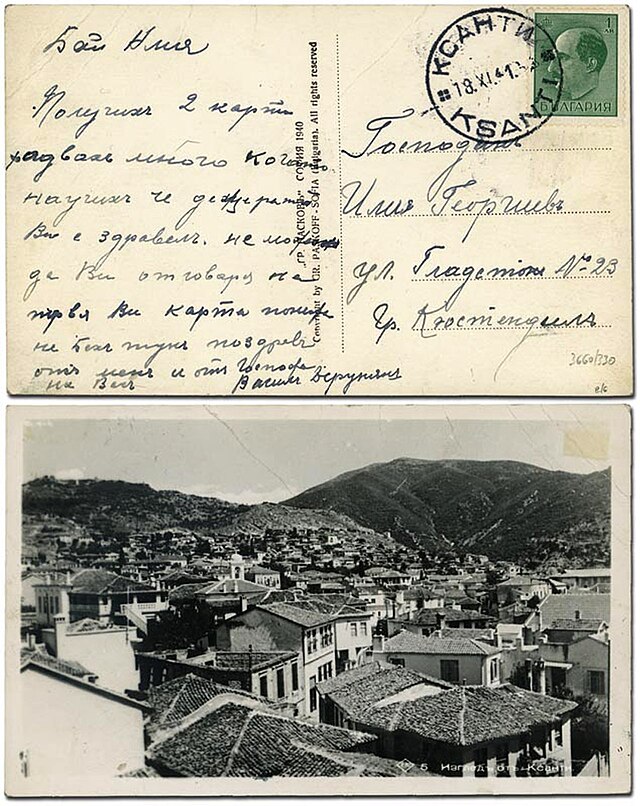 Бай Илия
Получихъ 2 карти
радвахъ много когато
научихъ че
Ви е здравелъ. не можахъ
да Ви отговоря на
първя Ви карта понеже
не бехъ тука поздрав
отъ мене и отъ Госпожа
на Васъ Василъ
"ГР. ПАСКОВЪ" СОФИЯ 1940
Copyright by GR. PASKOFF - SOFIA (Bulgaria). All rights reserved
КСАНТИ
18.XI.41
KSANTI
1 ЛВ
БЪЛГАРИЯ
Господинъ
Илия Георгиевъ
ул. Гладстонъ № 23
Гр. Кюстендилъ
3660/330
5 Изгледъ отъ Ксанти